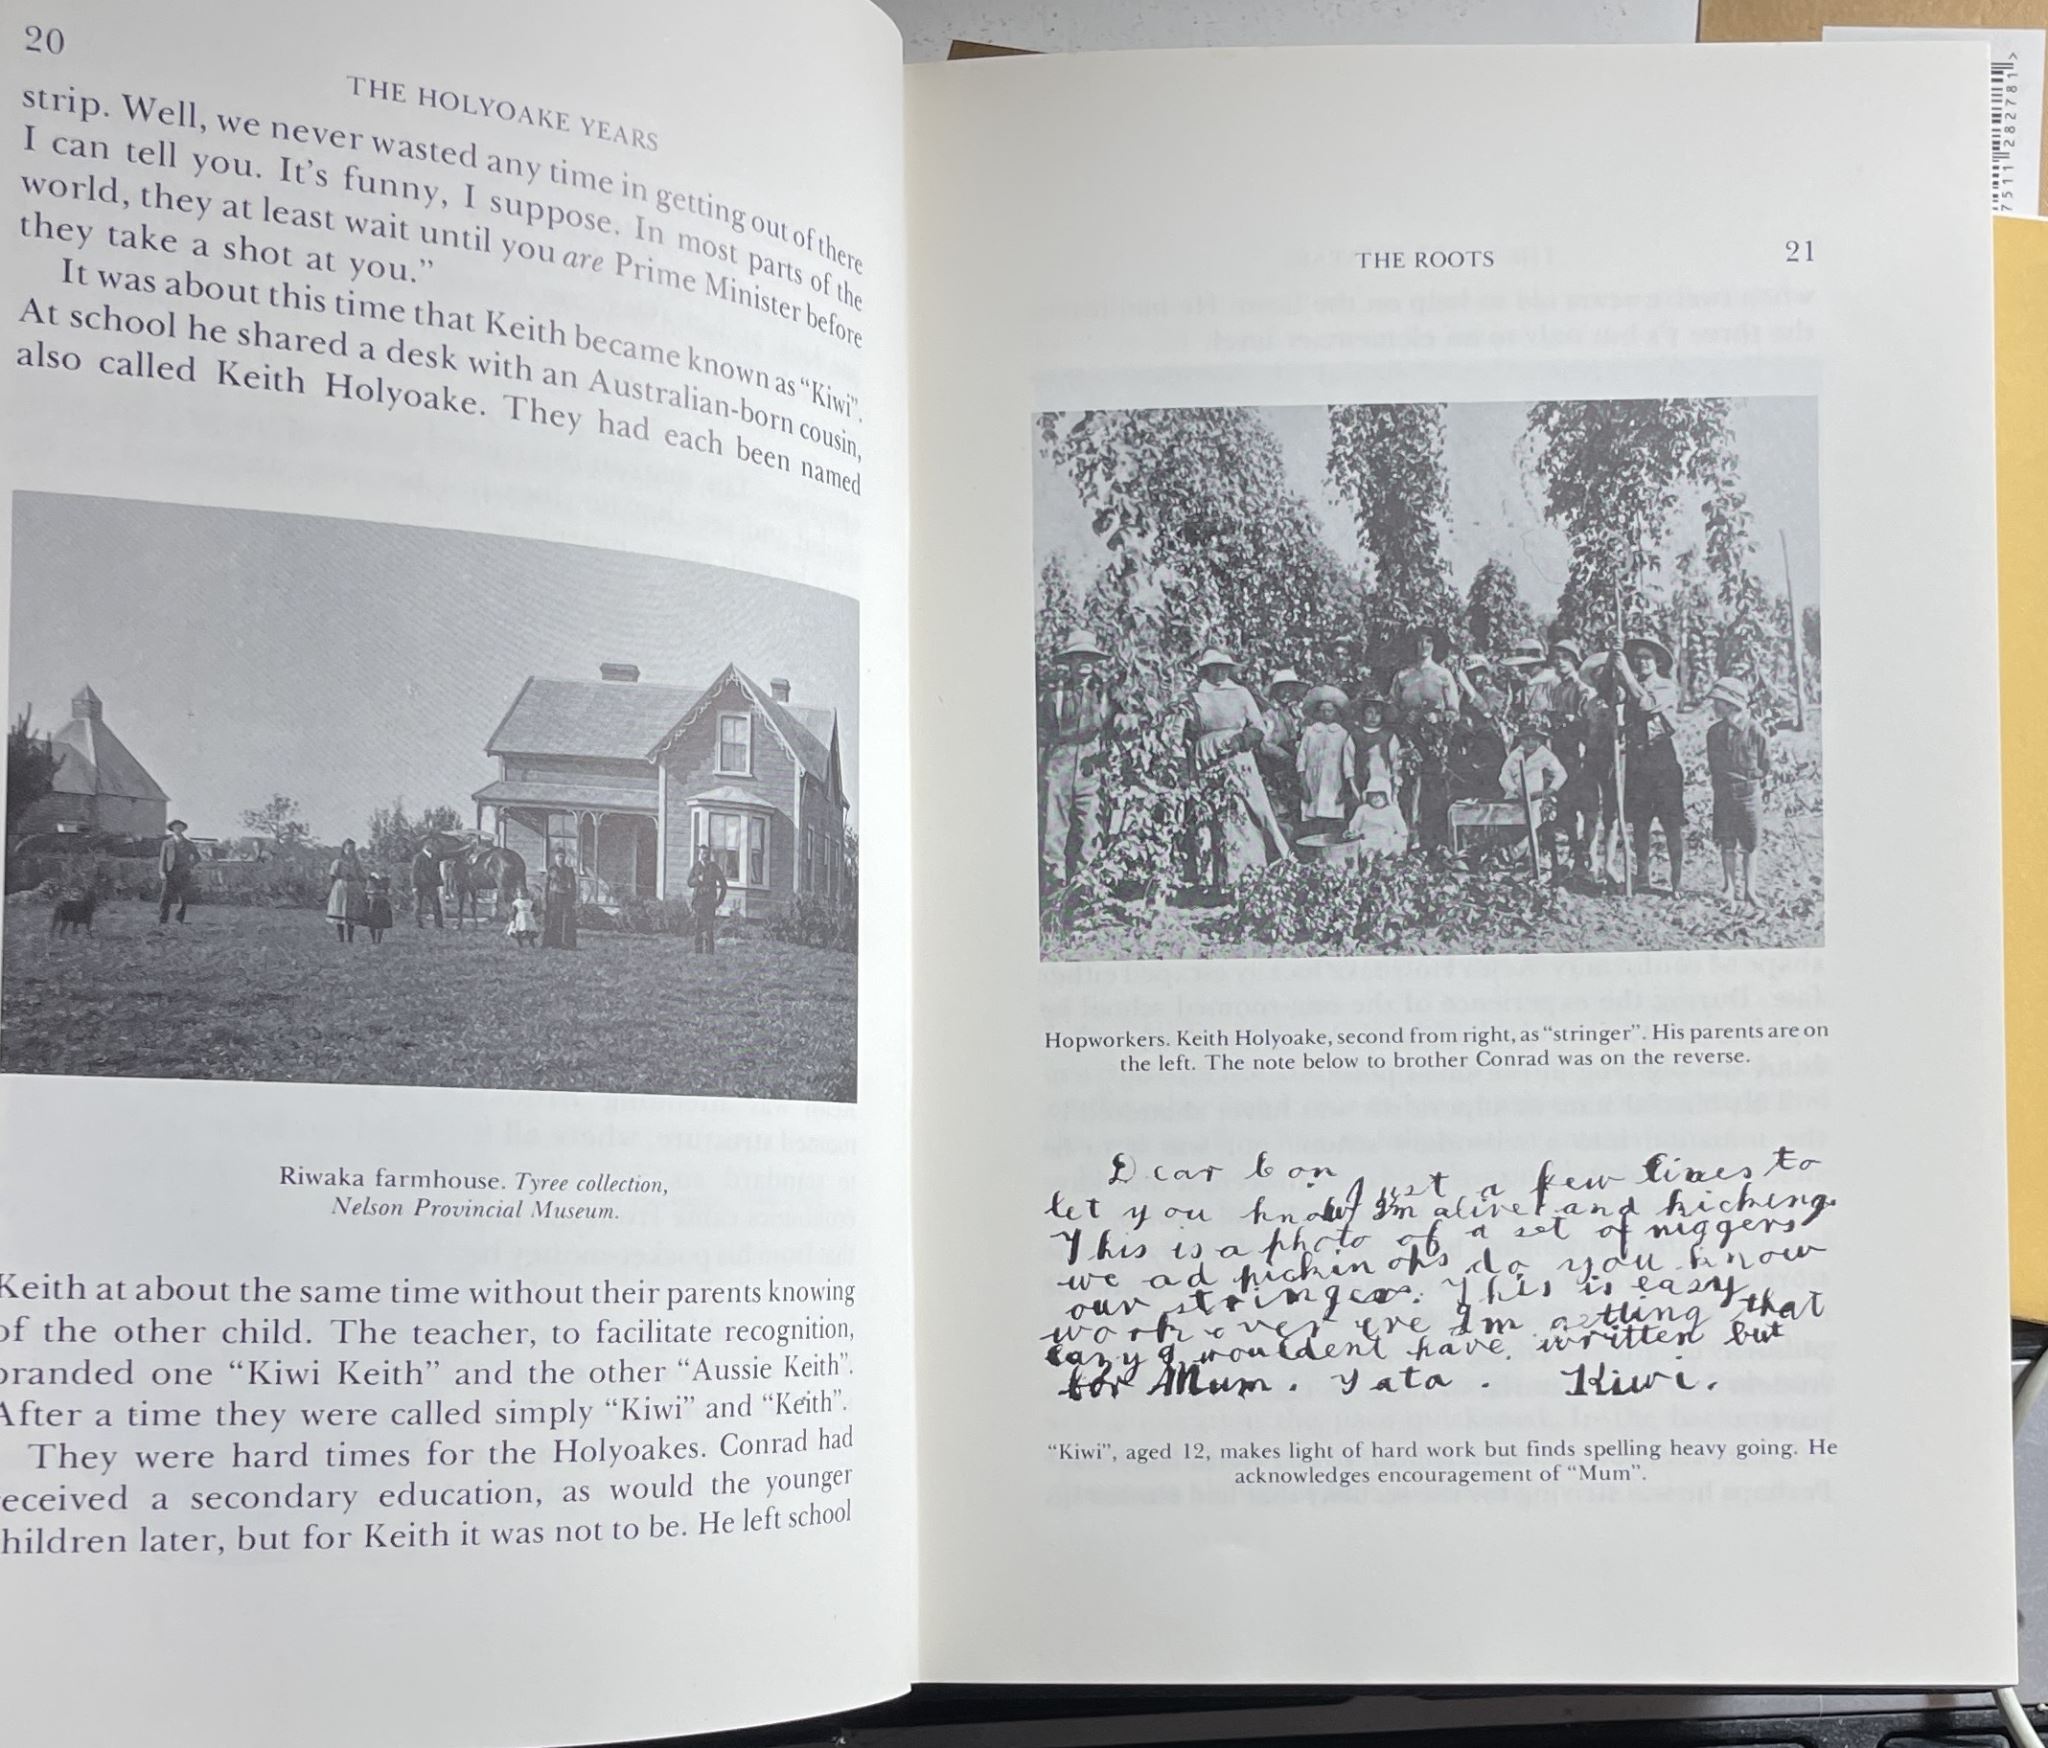 20
THE HOLYOAKE YEARS
strip. Well, we never wasted any time in getting out of there
I can tell you. It's funny, I suppose. In most parts of the
world, they at least wait until you are Prime Minister before
they take a shot at you."
It was about this time that Keith became known as "Kiwi".
At school he shared a desk with an Australian-born cousin,
also called Keith Holyoake. They had each been named
Riwaka farmhouse. Tyree collection,
Nelson Provincial Museum.
Keith at about the same time without their parents knowing
of the other child. The teacher, to facilitate recognition,
branded one "Kiwi Keith" and the other "Aussie Keith".
After a time they were called simply "Kiwi" and "Keith".
They were hard times for the Holyoakes. Conrad had
eceived a secondary education, as would the younger
hildren later, but for Keith it was not to be. He left school
THE ROOTS
21
Hopworkers. Keith Holyoake, second from right, as "stringer". His parents are on
the left. The note below to brother Conrad was on the reverse.
Dear Con
Just a few lines to
let you know Im alive and kicking.
This is a photo of a set of niggers
we ad pickin ops do you know
our stringer. This is easy
work over ere Im getting that
lazy I wouldent have written but
for Mum. Tata. Kiwi.
"Kiwi", aged 12, makes light of hard work but finds spelling heavy going. He
acknowledges encouragement of "Mum".
75111 2827811>